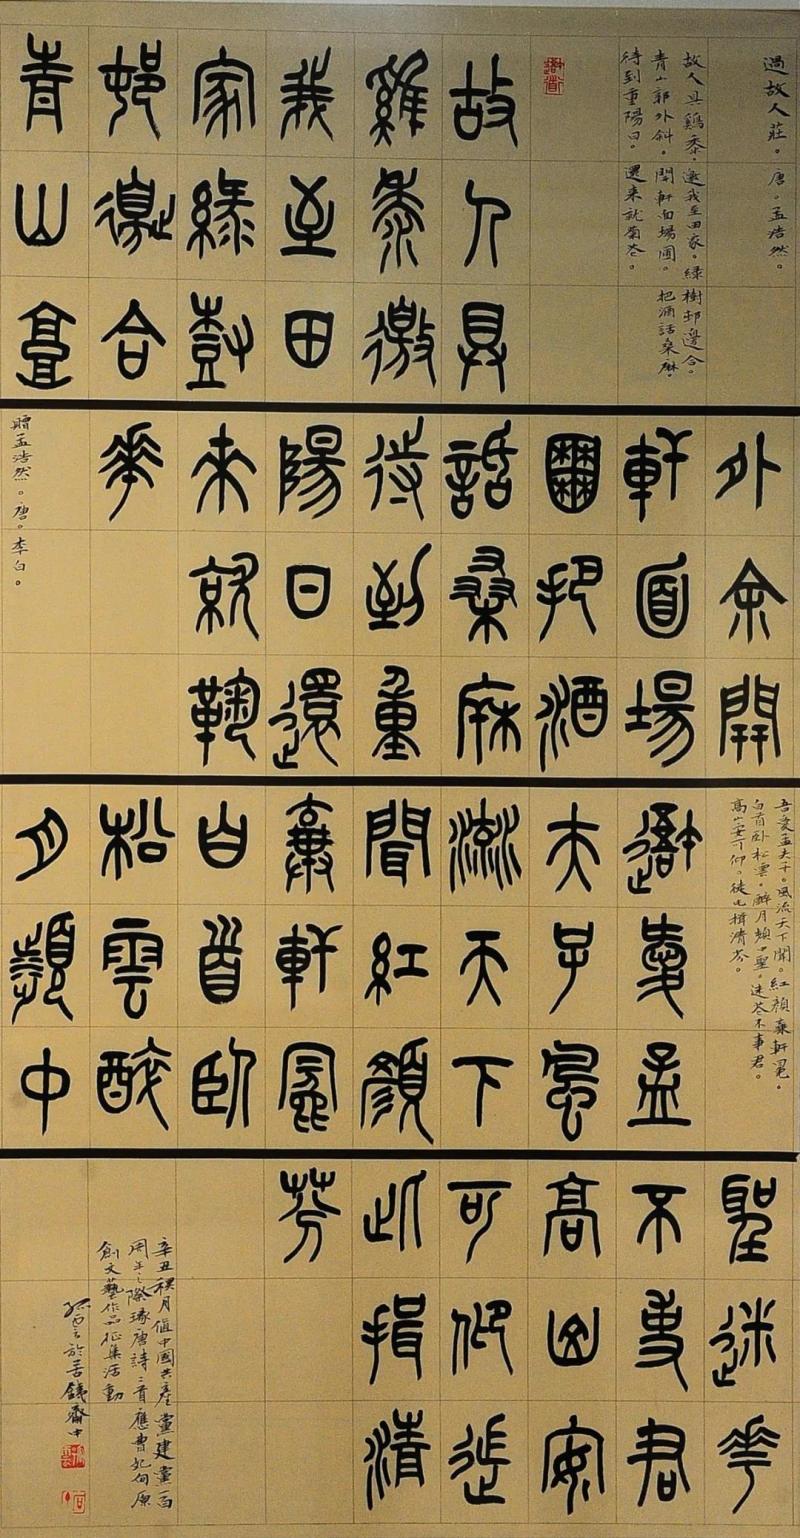 過故人莊。唐。孟浩然。
故人具鷄黍。邀我至田家。綠樹邨邊合。
青山郭外斜。開軒面場圃。把酒話桑麻。
待到重陽日。還來就菊花。
故人具
雞黍邀
我至田
家綠樹
邨邊合
青山郭
外斜開
軒面場
圃把酒
話桑麻
待到重
陽日還
來就鞠
華
贈孟浩然。唐。李白。
吾愛孟夫子。風流天下聞。紅顏棄軒冕。
白首臥松雲。醉月頻中聖。迷花不事君。
高山安可仰。徒此揖清芬。
吾愛孟
夫子風
流天下
聞紅顏
棄軒冕
白首臥
松雲醉
月頻中
聖迷華
不事君
高山安
可仰徒
此揖清
芬
辛丑月值中國共產黨建黨一百
周年之際琢唐詩二首應曹妃甸原
創文藝作品征集活動
於苦錢齋中